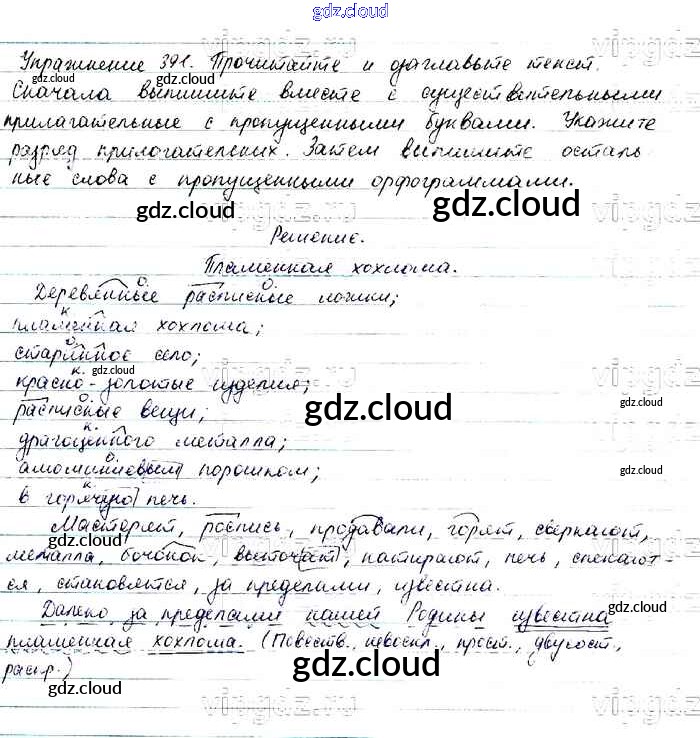 gdz.cloud
Упражнение 391. Прочитайте и озаглавьте текст.
gdz.cloud
Сначала выпишите вместе с существительными
прилагательные с пропущенными буквами. Укажите
gdz.cloud
разряд прилагательных. Затем выпишите осталь
ные слова с пропущенными орфограммами.
gdz.cloud gdz.cloud
vipgdz
Решение.
Пламенная хохлома.
Деревянные расписные ложки;
пламенная хохлома;
старинное село;
gdz.cloud
красно-золотые изделия;
расписные вещи;
gdz.cloud
gdz.cloud
драгоценного металла;
алюминиевым порошком;
gdz.cloud
в горячую печь.
Мастерят, роспись, продавали, горят, сверкают,
gdz.cloud
металла, бочонок, включают, натирают, печь, спекают-
ся, становятся, за пределами, известна.
gdz.cloud
Далеко за пределами нашей Родины известна
gdz.cloud
пламенная хохлома. (Повеств., невоскл., прост., двусост.,
распр.)
gdz.cloud
gdz.cloud
vipgdz